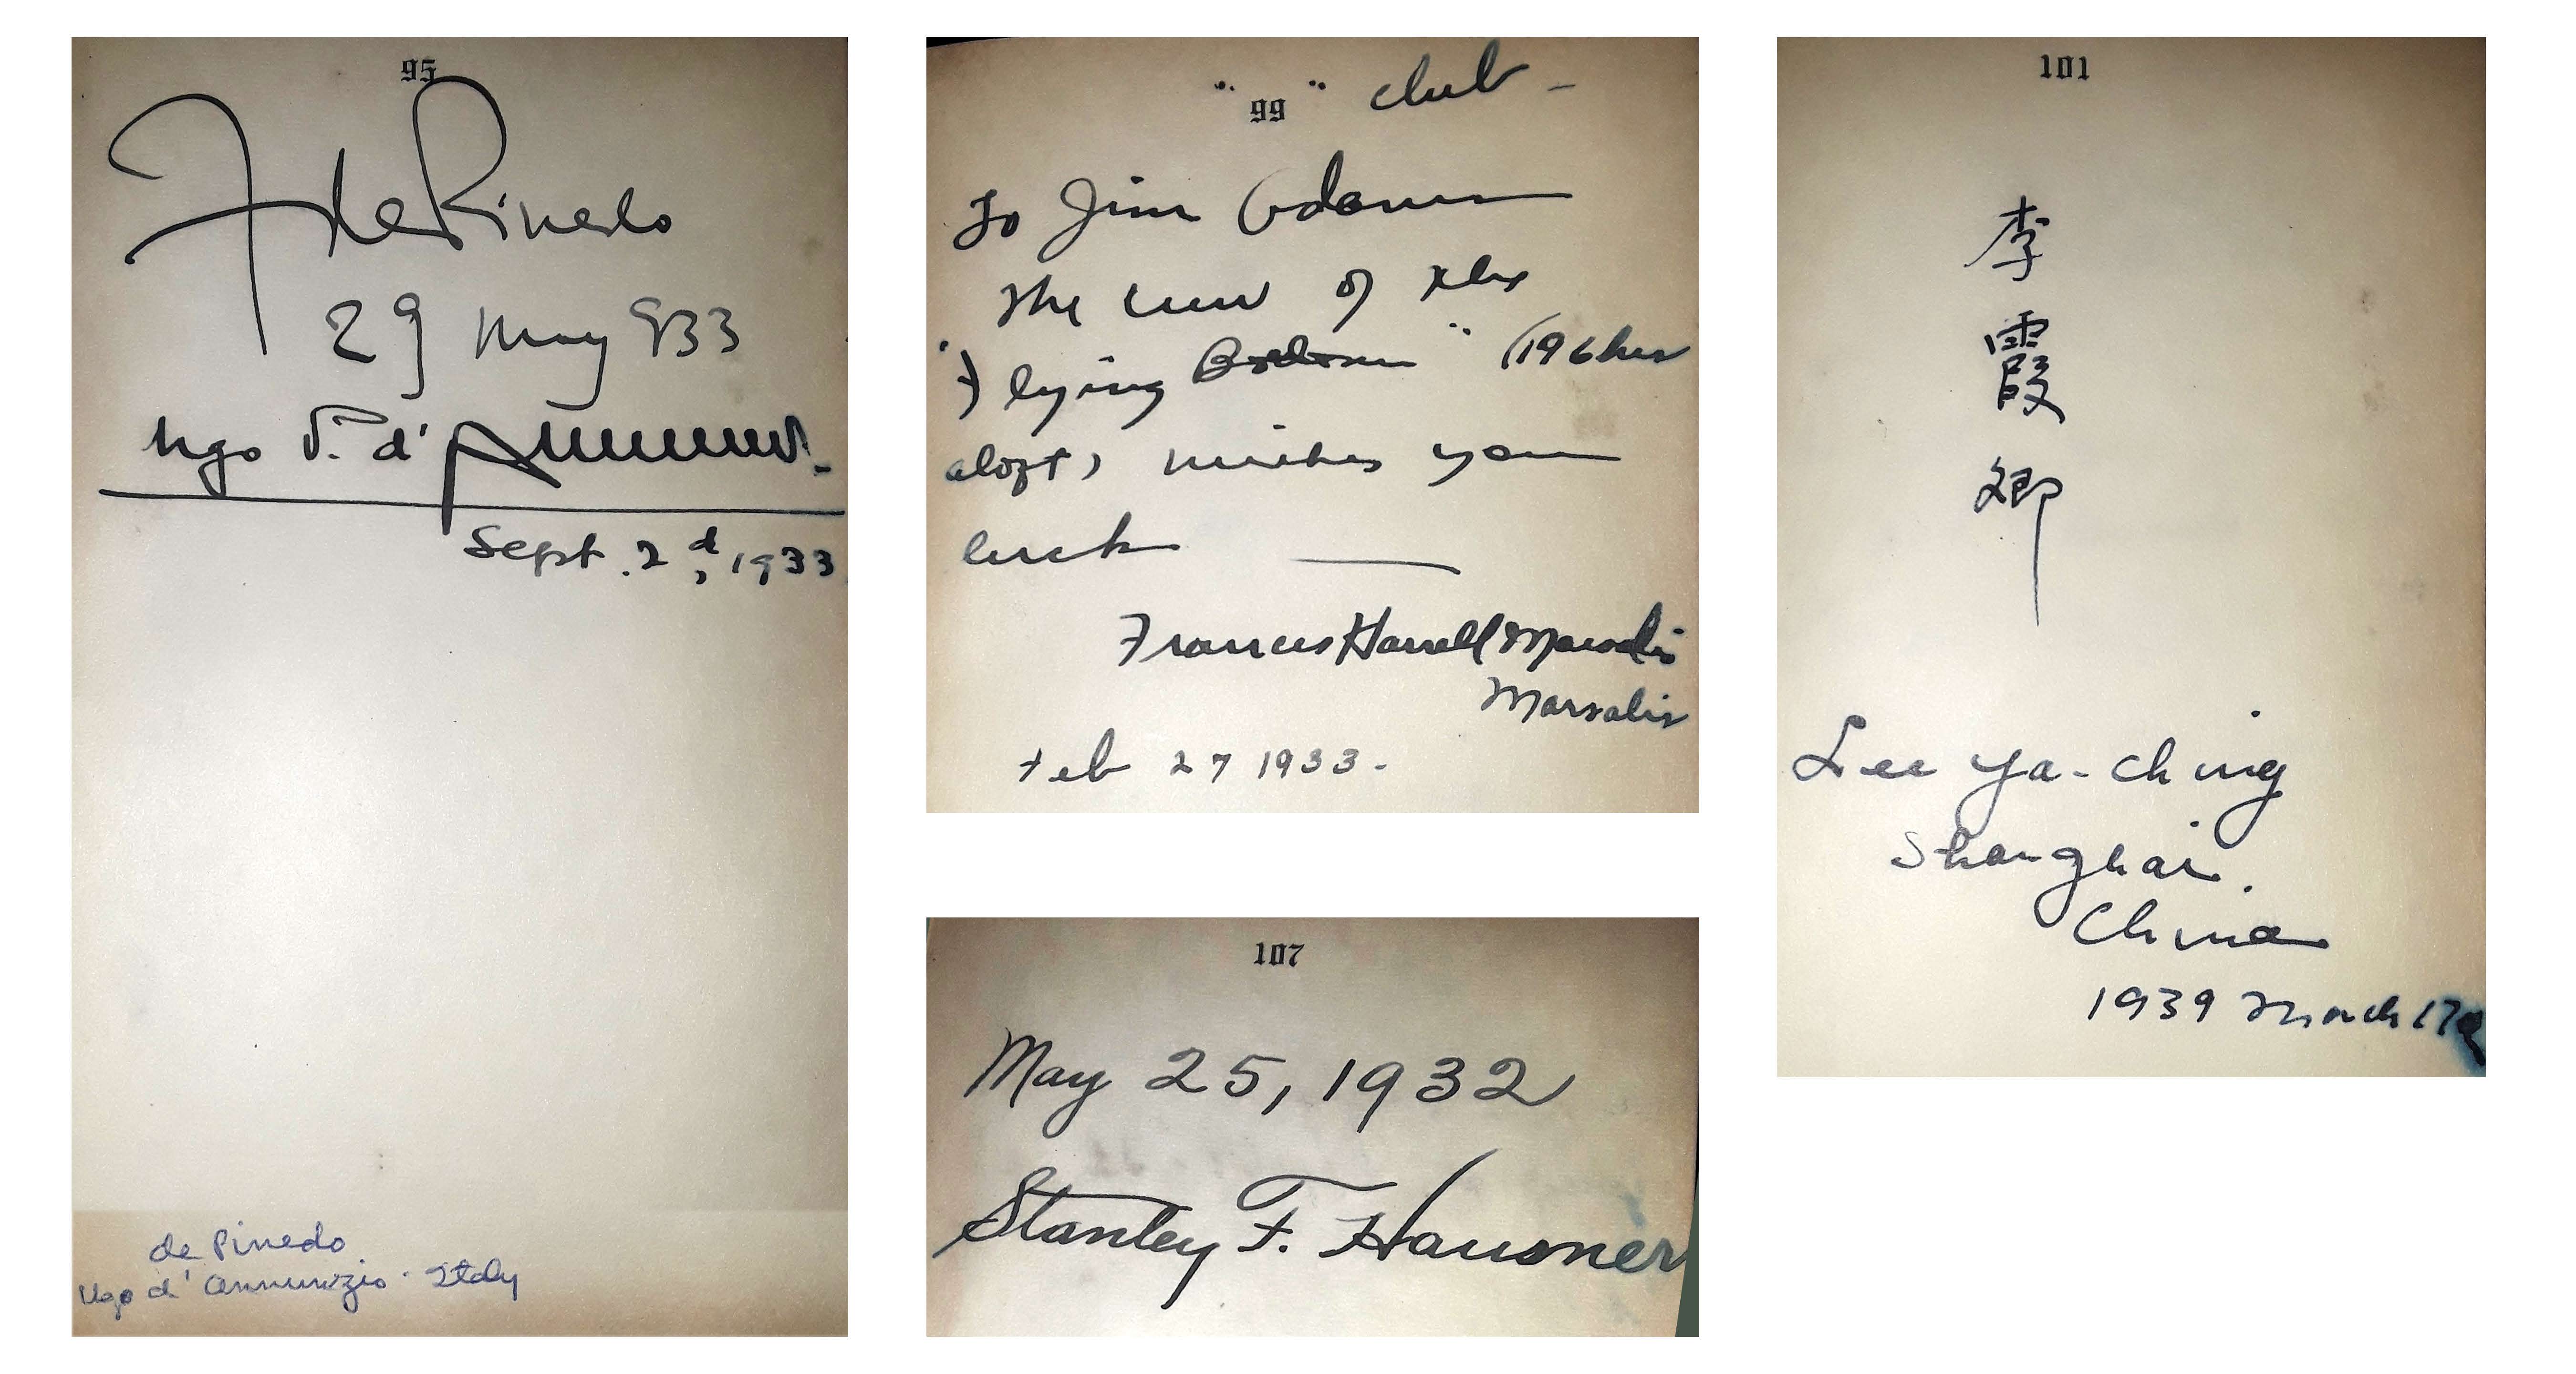 95
F de Pinedo
29 May 933
Ugo V. d'Annunzio
Sept. 2d, 1933
de Pinedo
Ugo d'Annunzio - Italy
"99" club -
To Jim Adams
The crew of the
"Flying Boudoir" (196 hrs
aloft) wishes you
luck —
Frances Harrell Marsalis
Marsalis
Feb 27 1933.
107
May 25, 1932
Stanley F. Hausner
101
李
霞
卿
Lee Ya-Ching
Shanghai.
China
1939 March 17